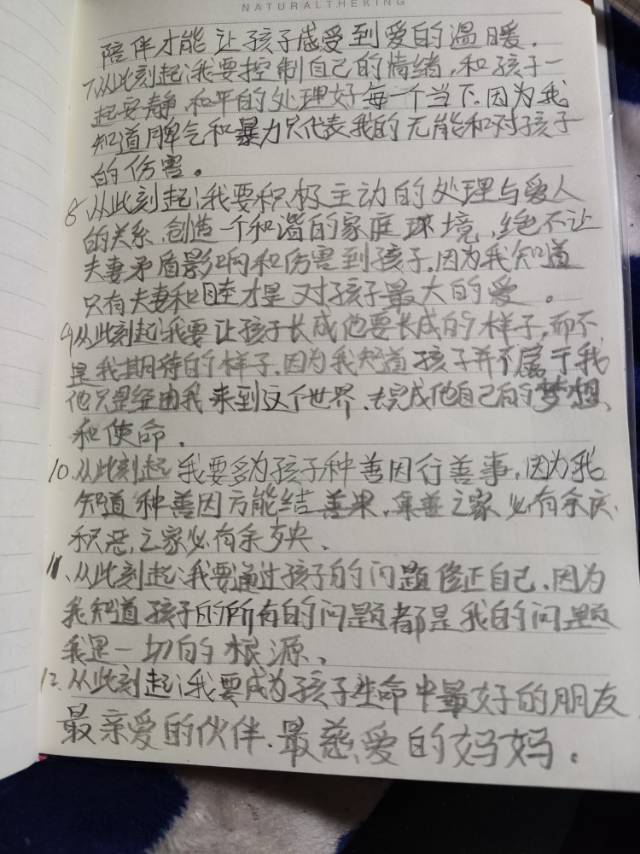 NATURALTHEKING
陪伴才能让孩子感受到爱的温暖.
7.从此刻起:我要控制自己的情绪.和孩子一
起安静.和平的处理好每一个当下.因为我
知道脾气和暴力只代表我的无能和对孩子
的伤害。
8.从此刻起:我要积极主动的处理与爱人
的关系.创造一个和谐的家庭环境.绝不让
夫妻矛盾影响和伤害到孩子.因为我知道
只有夫妻和睦才是对孩子最大的爱。
9.从此刻起:我要让孩子长成他要长成的样子,而不
是我期待的样子.因为我知道孩子并不属于我
他只是经由我来到这个世界.去完成他自己的梦想、
和使命.
10.从此刻起我要多为孩子种善因行善事,因为我
知道种善因方能结善果,积善之家必有余庆.
积恶之家必有余殃、
11、从此刻起:我要通过孩子的问题修正自己.因为
我知道孩子的所有的问题都是我的问题
我是一切的根源、
12.从此刻起:我要成为孩子生命中最好的朋友
最亲爱的伙伴.最慈爱的妈妈.